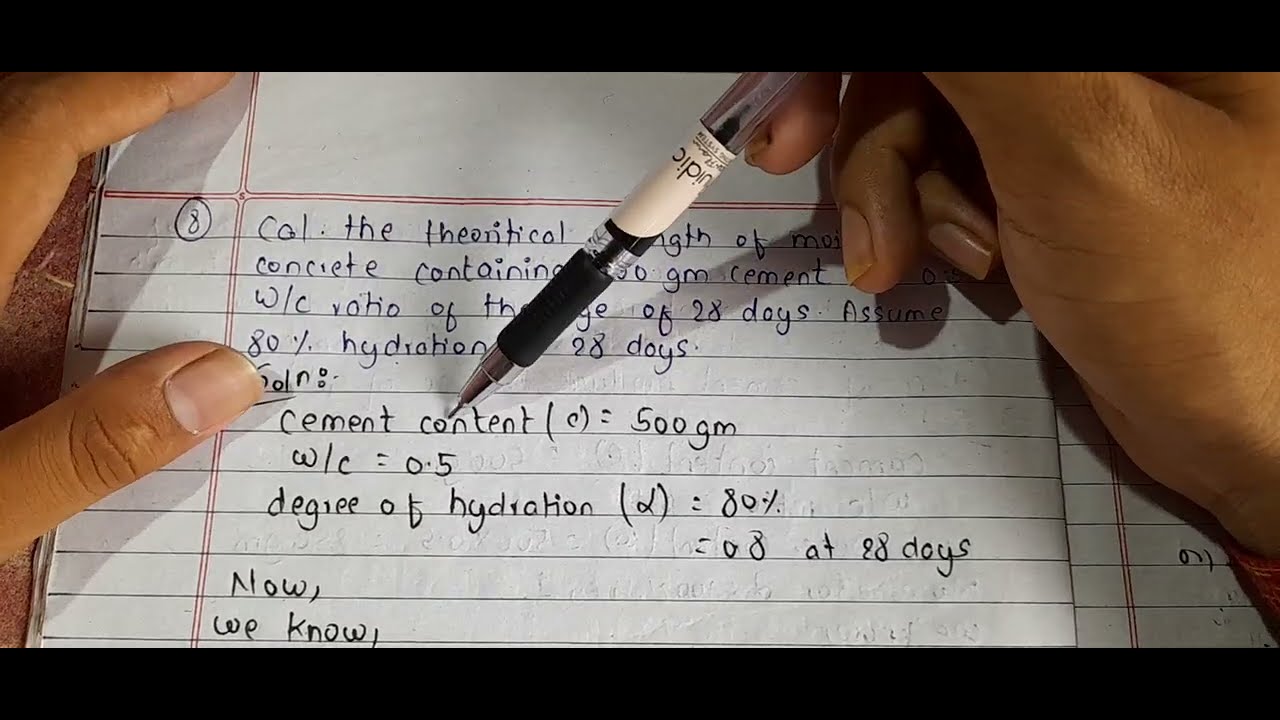 8 Cal. the theoritical of
concrete containing gm cement
w/c ratio of of 28 days. Assume
80% hydration 28 days.
Soln:-
cement content (c) = 500gm
w/c = 0.5
degree of hydration (α) = 80%
= 0.8 at 28 days
or)
Now,
we know,